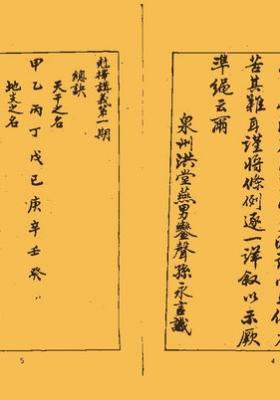 苦其難耳謹將條例逐一詳叙以示厥
準繩云爾
泉州洪堂燕男鑾聲孫永言識
4
尅擇講義第一期
總訣
天干之名
甲乙丙丁戊己庚辛壬癸
地支之名
5